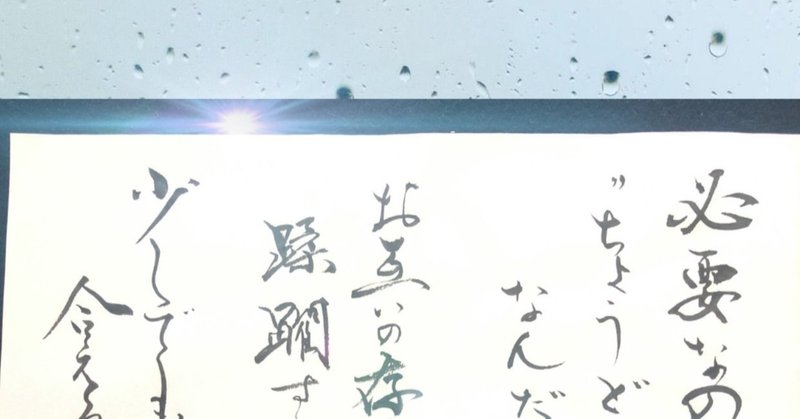 必要なの
"ちょうど
なんだ
お互いの存
蹂躙す
少しでも
合える